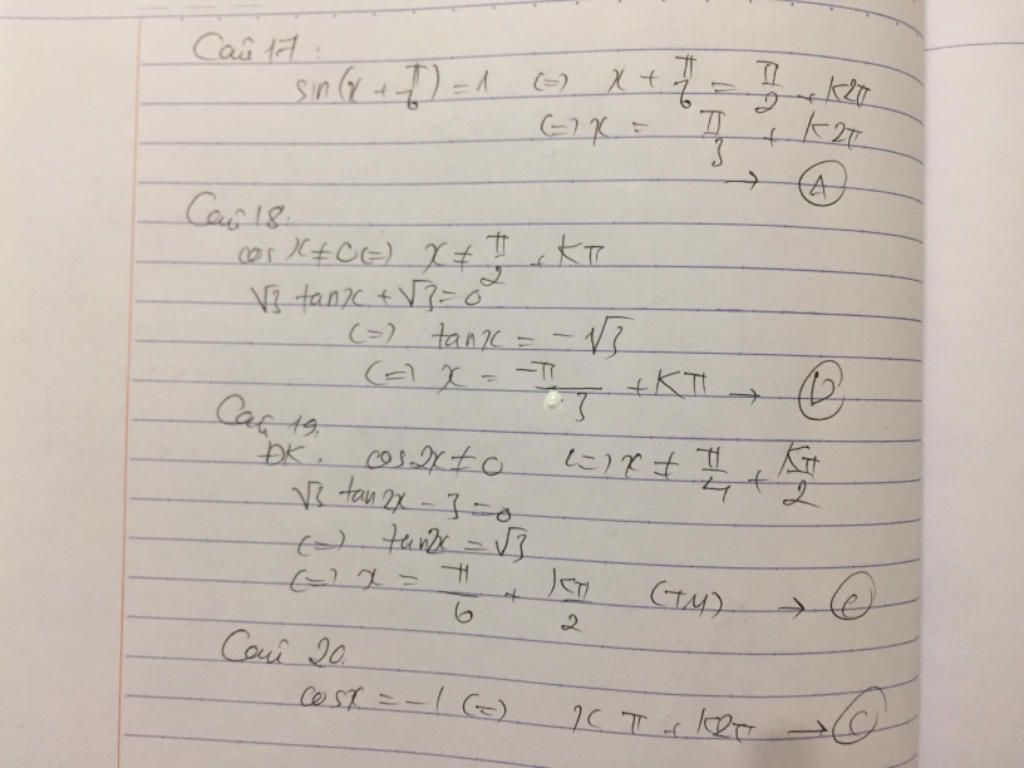 Câu 17:
sin(x + π/6) = 1 (=) x + π/6 = π/2 + k2π
(=) x = π/3 + k2π
→ A
Câu 18.
cos x ≠ 0 (=) x ≠ π/2 + kπ
√3 tanx + √3 = 0
(=) tanx = -√3
(=) x = -π/3 + kπ → D
Câu 19.
ĐK. cos2x ≠ 0 (=) x ≠ π/4 + kπ/2
√3 tan2x - 3 = 0
(=) tan2x = √3
(=) x = π/6 + kπ/2 (TM) → C
Câu 20.
cosx = -1 (=) x π + k2π → C